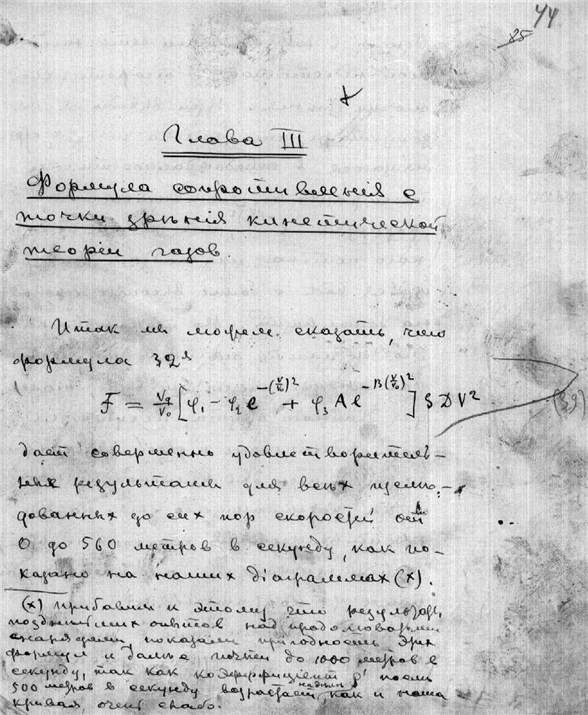 44
85
Глава III
Формула сопротивленія с
точки зрѣнія кинетической
теоріи газов.
Итак мы можем сказать, что
формула 32ª
F = V₁/V₀ [φ₁ - φ₂ e^-(V/V₀)² + φ₃ A e^-B(V/V₀)²] S D V²
(39)
дает совершенно удовлетворитель-
ные результаты для всех изслѣ-
дованных до сих пор скоростей от
0 до 560 метров в секунду, как по-
казано на наших діаграммах (х).
(х) прибавим к этому что результаты
позднѣйших опытов над продолговатыми
снарядами показали пригодность этих
формул и дальше почти до 1000 метров в
секунду, так как коэффиціент ρ' послѣ
500 метров в секунду возрастает, как и наша
кривая очень слабо.